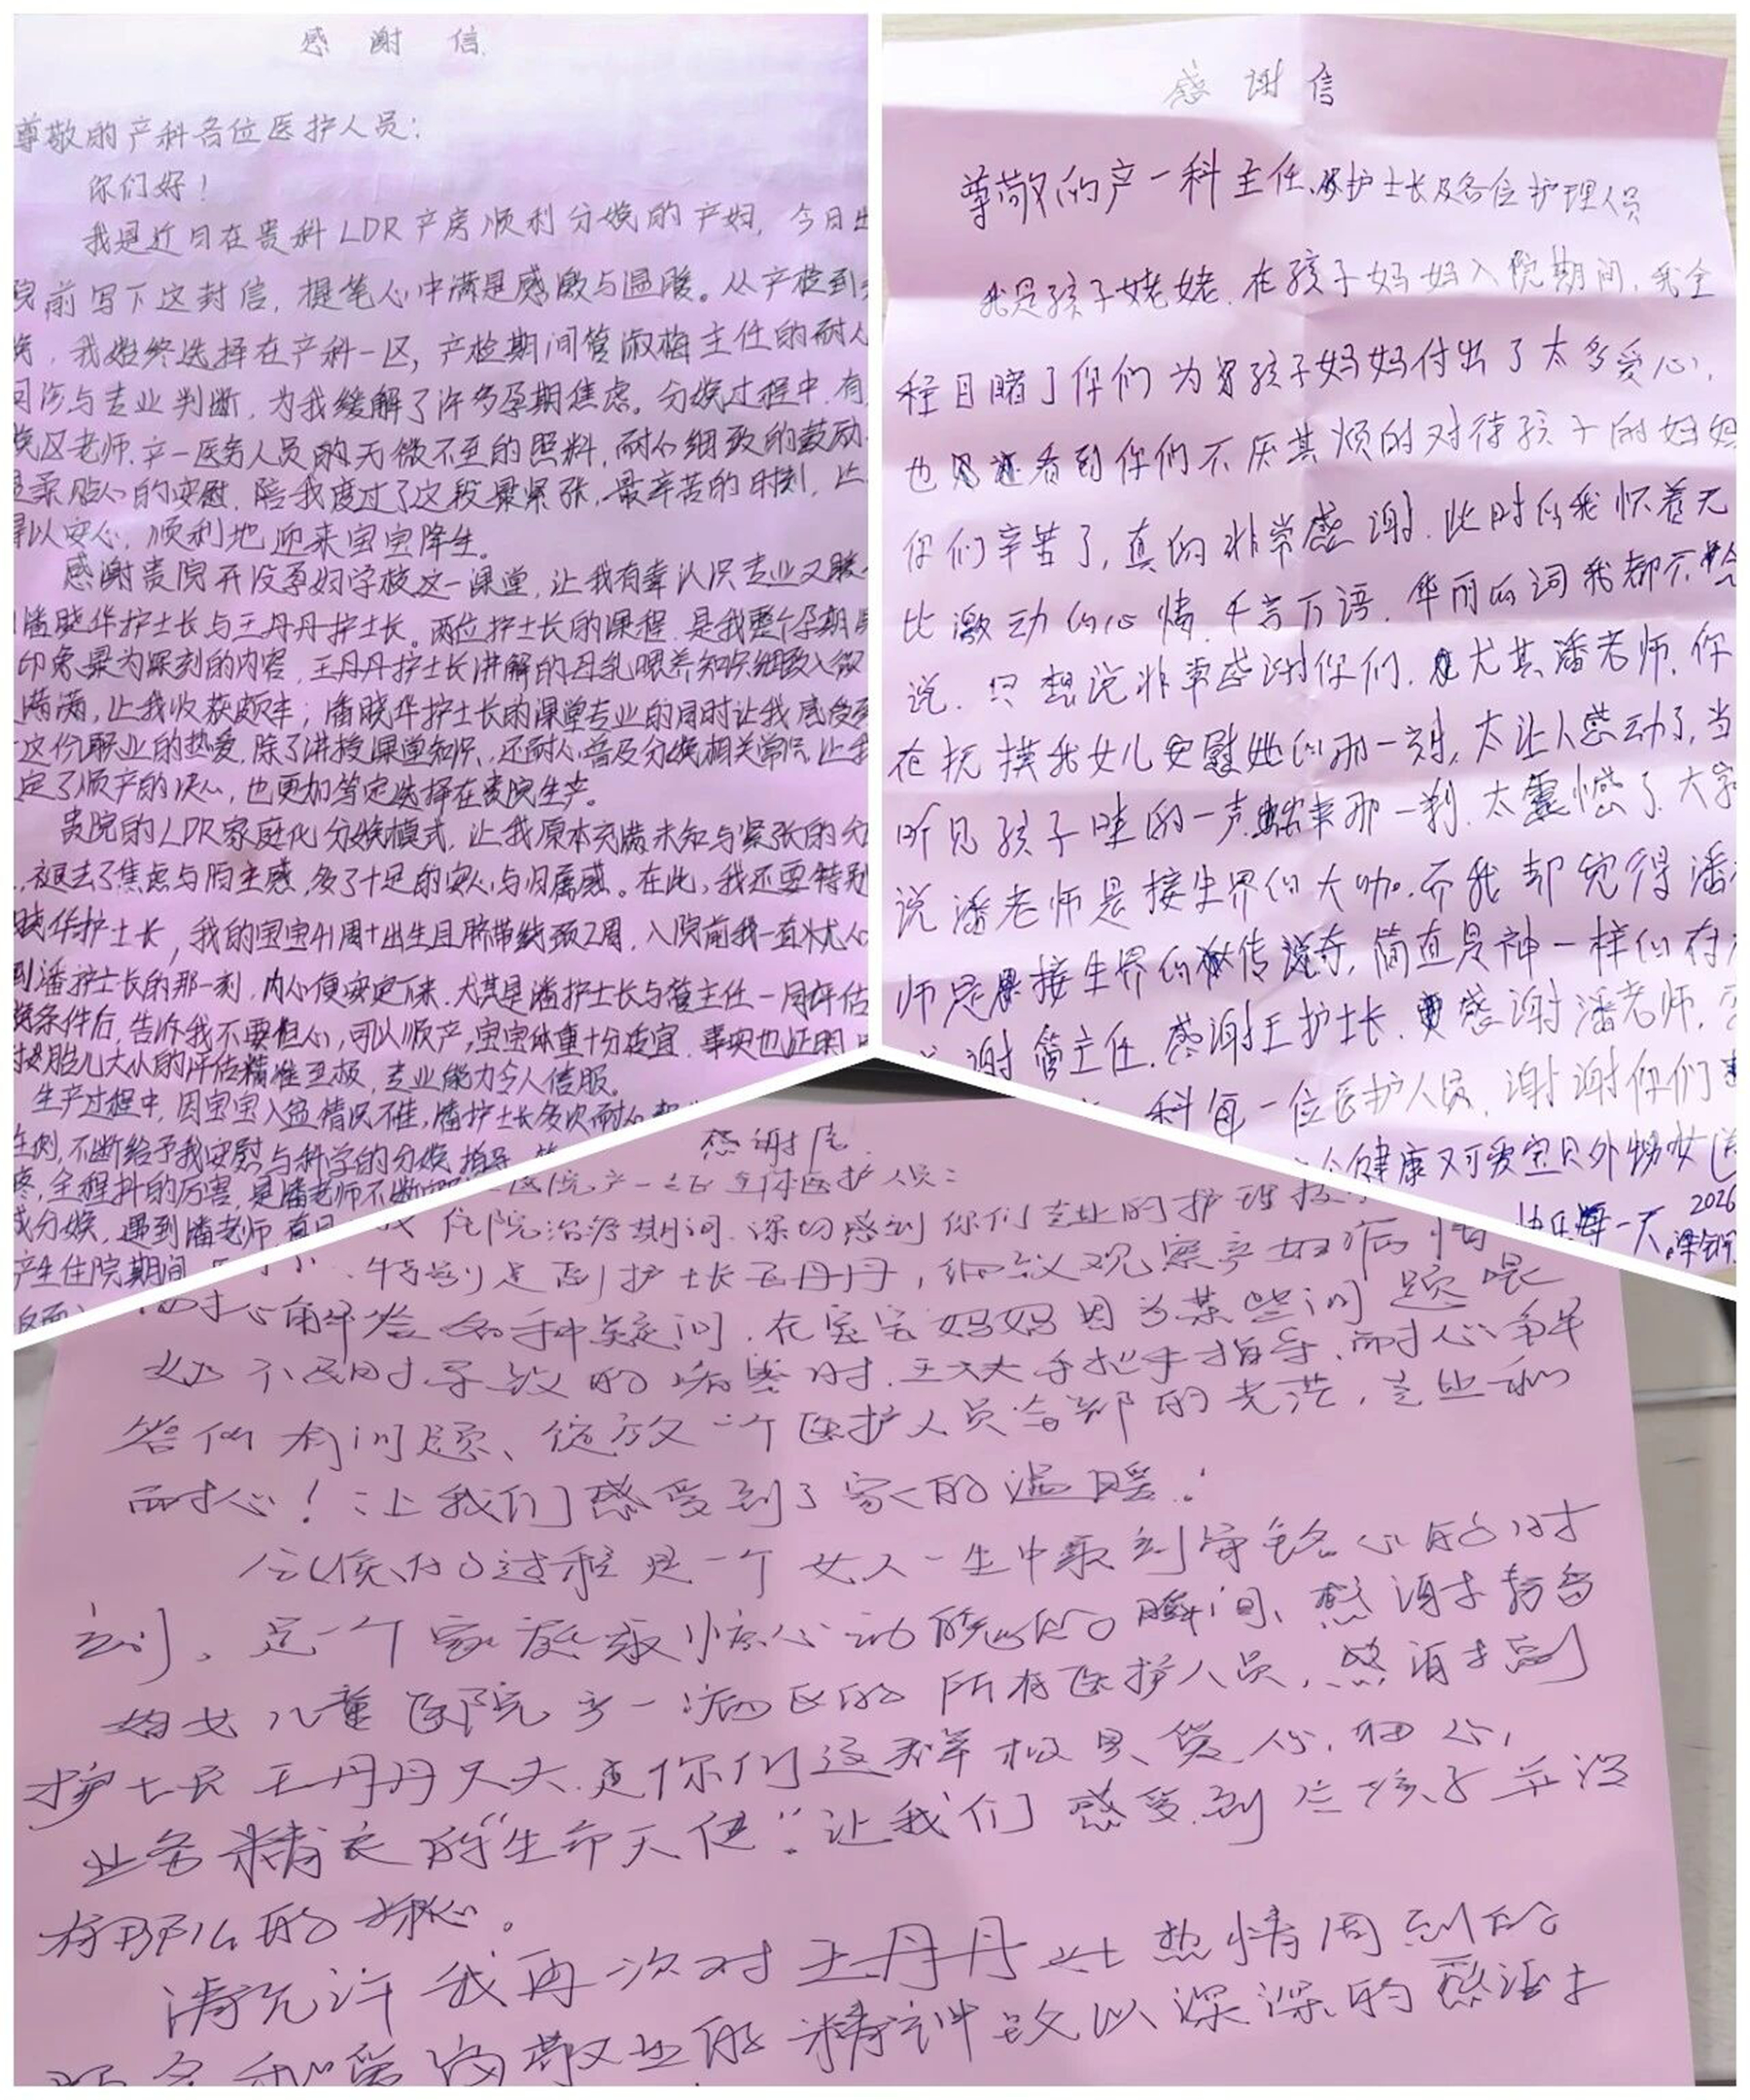 感谢信
尊敬的产科各位医护人员：
你们好！
我是近日在贵科LDR产房顺利分娩的产妇，今日出
院前写下这封信，提笔心中满是感激与温暖。从产检到
，我始终选择在产科一区，产检期间管淑梅主任的耐心
问诊与专业判断，为我缓解了许多孕期焦虑。分娩过程中，有
区老师、产一医务人员的无微不至的照料，耐心细致的鼓励
柔贴心的安慰，陪我度过了这段最紧张、最辛苦的时刻，让
得以安心、顺利地迎来宝宝降生。
感谢贵院开设孕妇学校这一课堂，让我有幸认识专业又
潘晓华护士长与王丹丹护士长。两位护士长的课程，是我整个孕期
印象最为深刻的内容，王丹丹护士长讲解的母乳喂养知识细致入微
满满，让我收获颇丰；潘晓华护士长的课堂专业的同时让我感受到
这份职业的热爱，除了讲授课堂知识，还耐心普及分娩相关常识，让我
定了顺产的决心，也更加笃定选择在贵院生产。
贵院的LDR家庭化分娩模式，让我原本充满未知与紧张的分
，褪去了焦虑与陌生感，多了十足的安心与归属感。在此，我还要特别
晓华护士长，我的宝宝41周+出生且脐带绕颈2周，入院前我一直忧心
到潘护士长的那一刻，内心便安定下来，尤其是潘护士长与管主任一同评估
条件后，告诉我不要担心，可以顺产，宝宝体重十分适宜，事实也证明
胎儿大小的评估精准至极，专业能力令人信服。
生产过程中，因宝宝入盆情况不佳，潘护士长多次耐心
侧，不断给予我安慰与科学的分娩指导
疼，全程抖的厉害，是潘老师不断
成分娩，遇到潘老师
产住院期间
感谢信
尊敬的产一科主任、护士长及各位护理人员
我是孩子姥姥，在孩子妈妈入院期间，我全
程目睹了你们为孩子妈妈付出了太多爱心，
也看到你们不厌其烦的对待孩子的妈妈
你们辛苦了，真的非常感谢，此时的我怀着无
比激动的心情，千言万语，华丽的词我都不会
说，只想说非常感谢你们，尤其潘老师，你
在抚摸我女儿安慰她的那一刻，太让人感动了，当
听见孩子哇的一声那一刹，太震憾了，大家
说潘老师是接生界的大咖，而我却觉得潘老
师是接生界的传奇，简直是神一样的存
谢管主任，感谢王护士长，感谢潘老师，
科每一位医护人员，谢谢你们
健康又可爱宝贝外甥女
快乐每一天
2026
感谢信
医院产一区全体医护人员：
住院治疗期间，深切感到你们专业的护理
特别是副护士长王丹丹，细致观察产妇病情
耐心解答各种疑问，在宝宝妈妈因为某些问题喂
奶不及时导致的时，王大夫手把手指导，耐心解
答所有问题、绽放一个医护人员全部的光芒，专业和
耐心！让我们感受到了家的温暖！
分娩的过程是一个女人一生中最刻骨铭心的时
刻，是一个家庭最惊心动魄的瞬间，感谢
妇女儿童医院产一病区的所有医护人员，感谢副
护士长王丹丹大夫，是你们这群极具爱心、细心，
业务精良的“生命天使”让我们感受到生孩子并没
有那么的担心。
请允许我再次对王丹丹热情周到的
爱岗敬业的精神致以深深的感谢